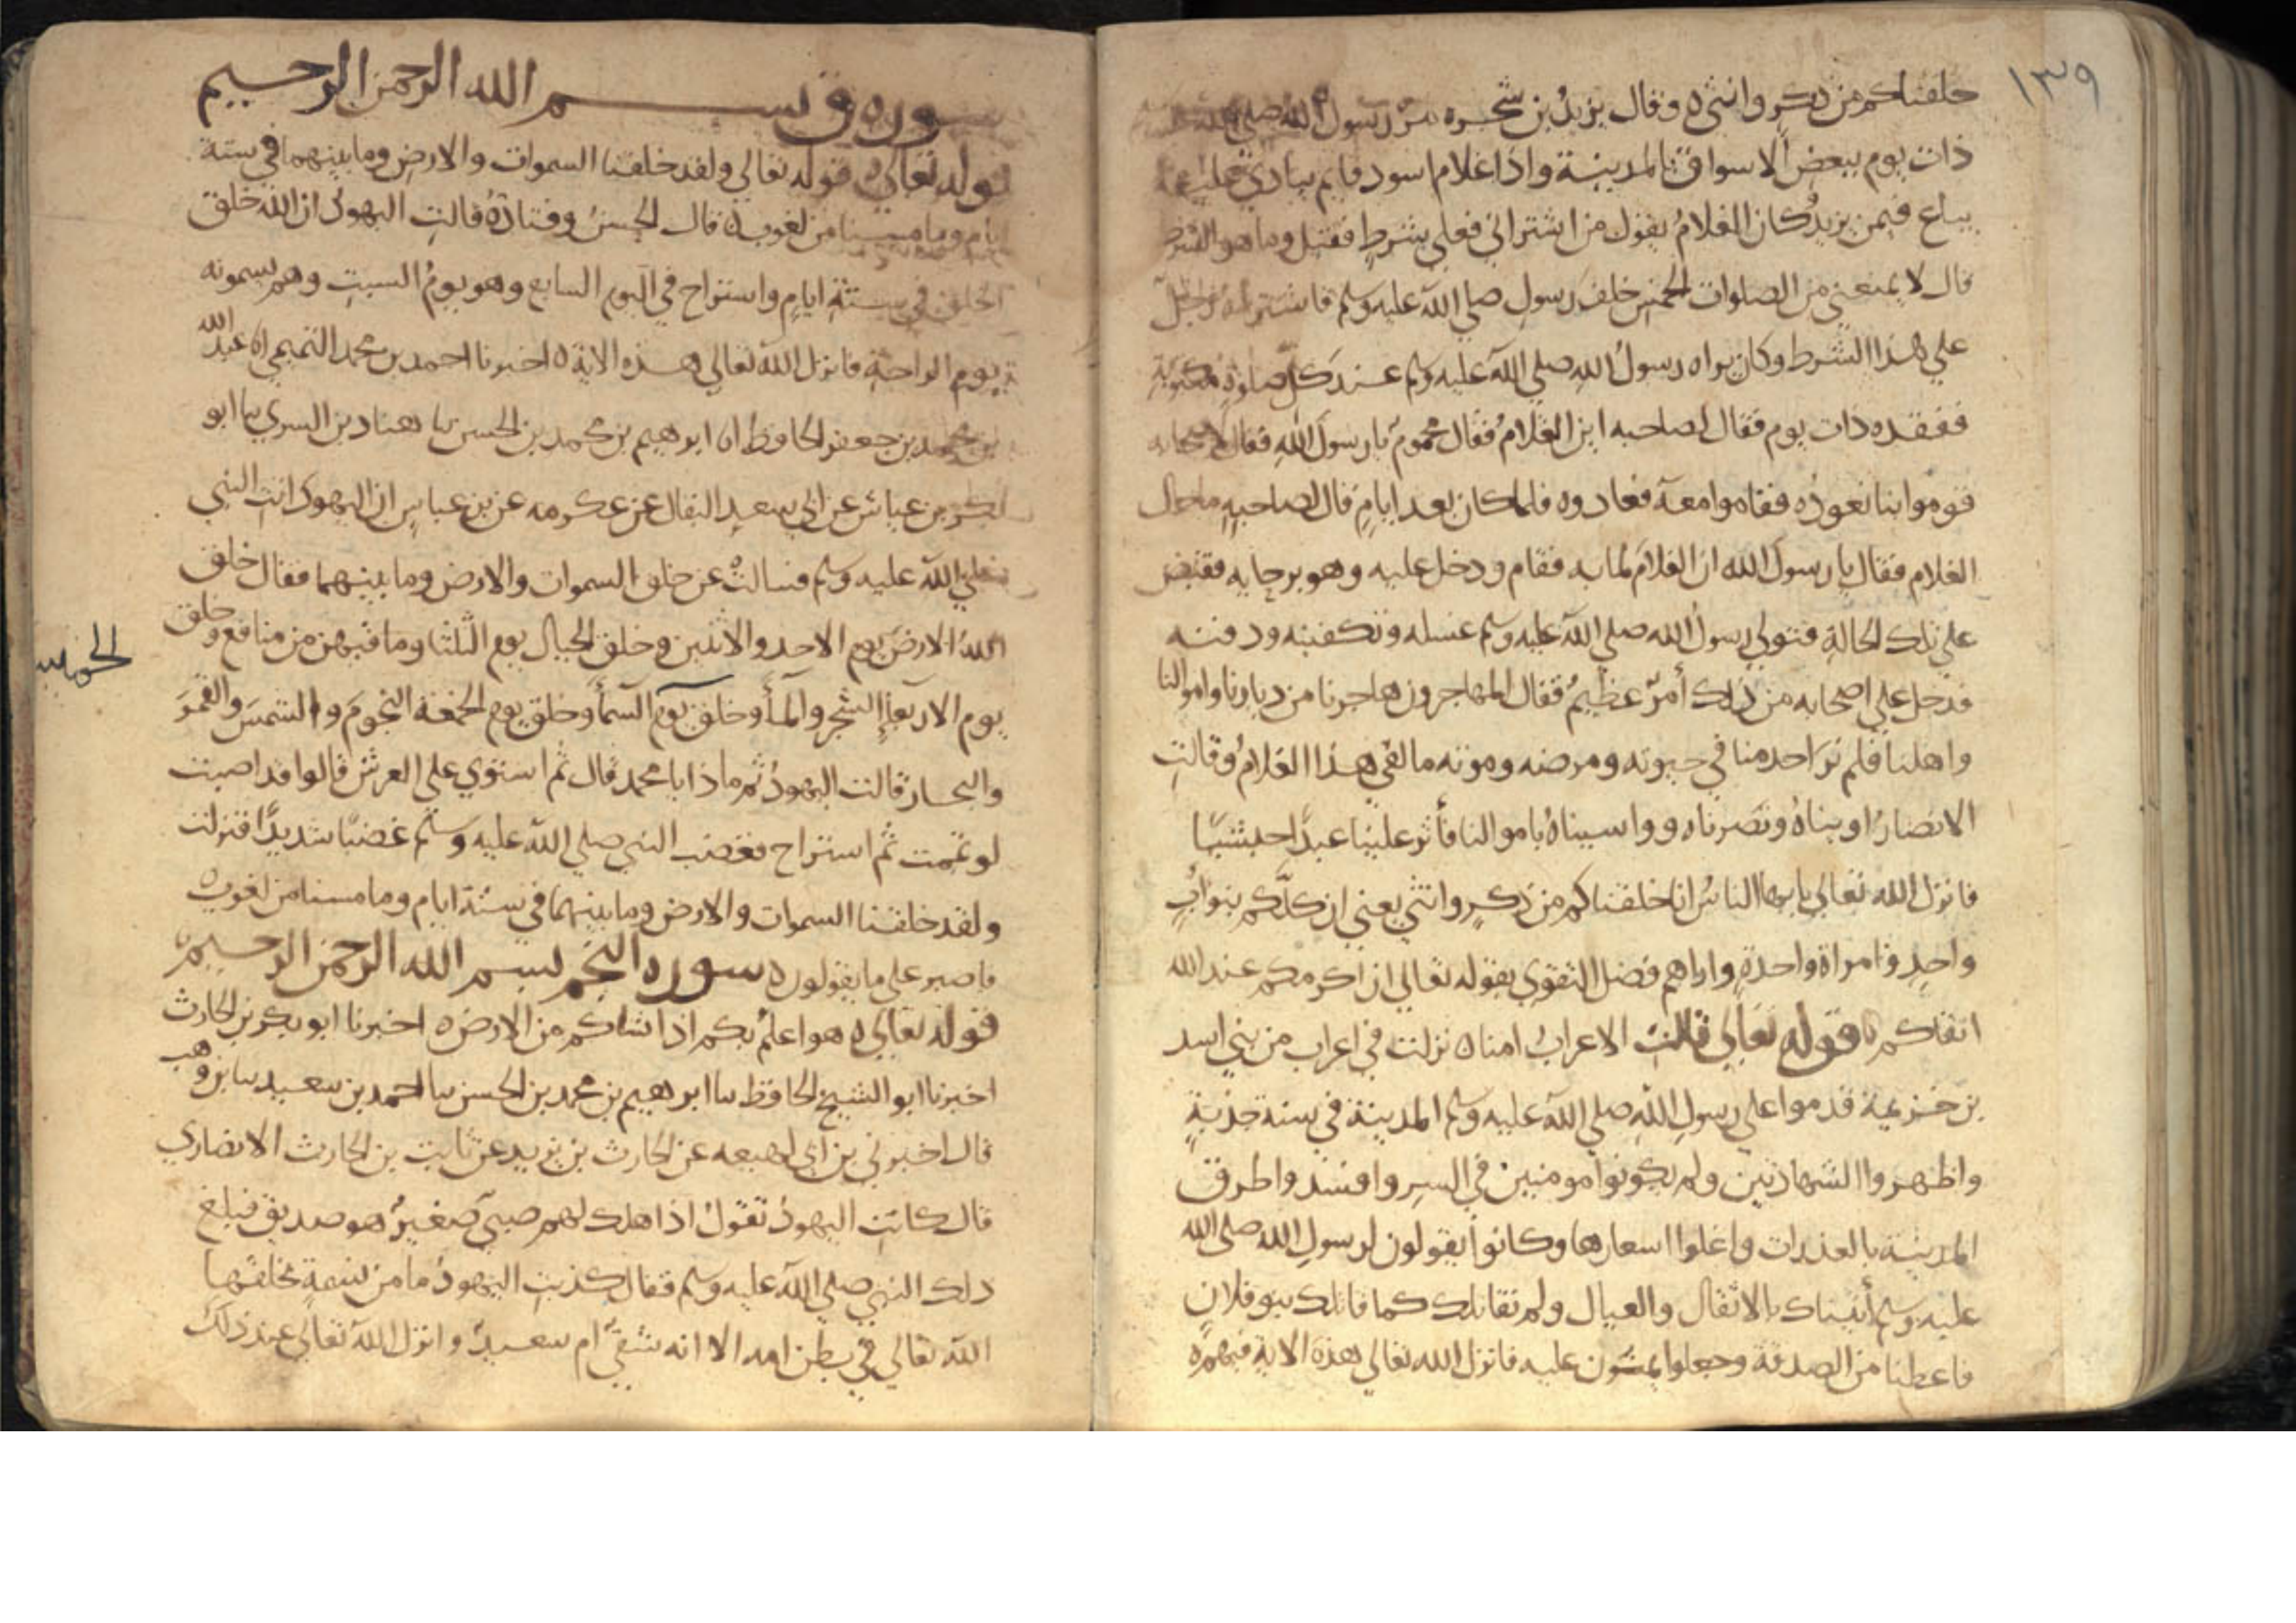 ١٣٩
خلقناكم من ذكر وانثى ه وقال يزيدُ بن شجره مرّ رسول الله صلى الله عليه
ذات يوم ببعض الاسواق بالمدينة واذا غلام اسود قايم ينادي عليه
يباع فيمن يزيدُ كان الغلامُ يقول من اشتراني فعلى بشرطٍ فقيل وما هو الشرط
قال لا يمنعني من الصلوات الخمس خلف رسول صلى الله عليه وسلم فاشتراه رجل
على هذا الشرط وكان يراه رسولُ الله صلى الله عليه وسلم عند كل صلوة مكتوبة
ففقده ذات يوم فقال لصاحبه اين الغلامُ فقال محمومٌ يا رسول الله فقال لاصحابه
قوموا بنا نعودُه فقاموا معه فعادوه فلما كان بعد ايامٍ قال لصاحبهِ ما حال
الغلام فقال يا رسول الله ان الغلام لما به فقام ودخل عليه وهو برحايه فقبض
على تلك الحالةِ فتولى رسولُ الله صلى الله عليه وسلم غسله وتكفينه ودفنه
فدخل على اصحابه من ذلك أمرٌ عظيمٌ فقال المهاجرون هاجرنا من ديارنا واموالنا
واهلنا فلم نرَ احد منا في حيوته ومرضه وموته ما لقي هذا الغلامُ وقالتِ
الانصارُ اويناهُ ونصرناه وواسيناهُ باموالنا فأثر علينا عبدًا حبشيًا
فانزل الله تعالى يايها الناسُ انا خلقناكم من ذكرٍ وانثى يعني ان كلّكم بنو أبٍ
واحدٍ وامراة واحدةٍ واراهم فضل التقوى بقوله تعالى ان اكرمكم عند الله
اتقاكم ه قوله تعالى قالتِ الاعرابُ امنا ه نزلت في اعراب من بني اسد
بن خزيمة قدموا على رسول الله صلى الله عليه وسلم المدينة في سنة جدبةٍ
واظهروا الشهادتين ولم يكونوا مومنين في السر وافسدوا طرق
المدينة بالعذرات واغلوا اسعارها وكانوا يقولون لرسول الله صلى الله
عليه وسلم أتيناك بالاثقال والعيال ولم نقاتلك كما قاتلك بنو فلانٍ
فاعطنا من الصدقة وجعلوا يمنّون عليه فانزل الله تعالى هذه الاية فيهم ه
سوره ق بسم الله الرحمن الرحيم
قوله تعالى ه قوله تعالى ولقد خلقنا السموات والارض وما بينهما في ستة
ايام وما مسنا من لغوب ه قال الحسنُ وقتادةُ قالتِ اليهودُ ان الله خلق
الخلق في ستةِ ايامٍ واستراح في اليوم السابع وهو يومُ السبتِ وهم يسمونه
يوم الراحةِ فانزل الله تعالى هذه الاية ه اخبرنا احمد بن محمد التميمي انا عبد الله
بن محمد بن جعفر الحافظ انا ابرهيم بن محمد بن الحسن نا هناد بن السري نا ابو
بكر بن عياش عن ابي سعد البقال عن عكرمه عن بن عباسٍ ان اليهود اتت النبي
صلى الله عليه وسلم فسالتهُ عن خلق السموات والارض وما بينهما فقال خلق
اللهُ الارض يوم الاحد والاثنين وخلق الجبال يوم الثلثا وما فيهن من منافع وخلق
يوم الاربعاءِ الشجر والمأ وخلق يوم
الخميس
السمأ وخلق يوم الجمعة النجوم والشمس والقمر
والبحار قالت اليهودُ ثم ماذا يا محمد قال ثم استوى على العرش قالوا قد اصبت
لو تممت ثم استراح فغضب النبي صلى الله عليه وسلم غضبًا شديدًا فنزلت
ولقد خلقنا السموات والارض وما بينهما في ستة ايام وما مسنا من لغوب
فاصبر على ما يقولون ه سوره النجم بسم الله الرحمن الرحيم
قوله تعالى ه هو اعلم بكم اذ انشاكم من الارض ه اخبرنا ابو بكر بن الحارث
اخبرنا ابو الشيخ الحافظ نا ابرهيم بن محمد بن الحسن نا احمد بن سعيد نا بن وهب
قال اخبرني بن ابي لهيعه عن الحارث بن يزيد عن ثابت بن الحارث الانصاري
قال كانت اليهودُ تقولُ اذا هلك لهم صبيٌ صغيرٌ هو صديق فبلغ
ذلك النبي صلى الله عليه وسلم فقال كذبتِ اليهودُ ما من نسمةٍ يخلقُها
الله تعالى في بطن امه الا انه شقيٌ ام سعيدٌ وانزل الله تعالى عند ذلك